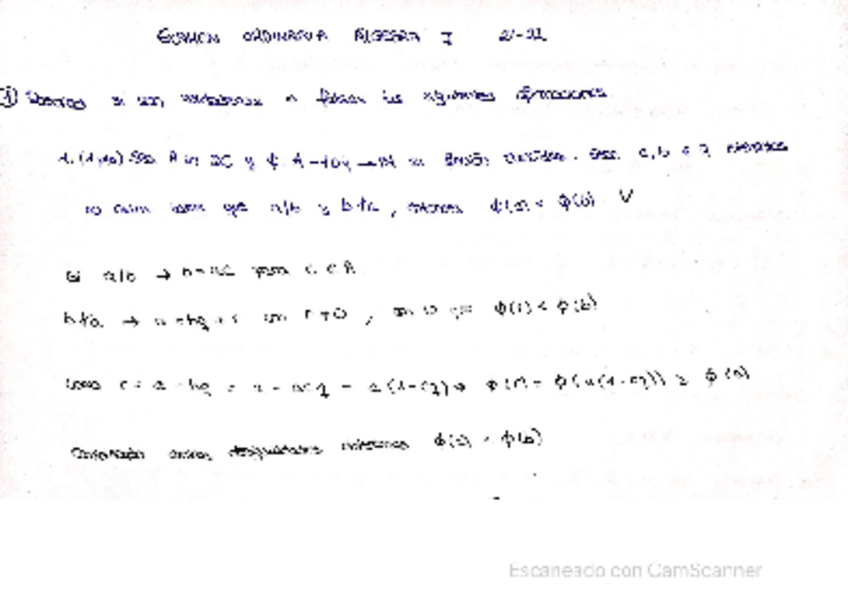 EXAMEN ORDINARIA ÁLGEBRA I 21-22
① si son verdaderas o falsas las siguientes afirmaciones
1. Sea A un DE y φ: A-{0} → N su función euclídea. Sean a,b ∈ A
no nulos tales que a/b y b∤a, entonces φ(a) < φ(b) V
Si a/b → b=ac para c ∈ A
b∤a → a = bq + r con r≠0, φ(r) < φ(b)
Como r = a - bq = a - acq = a(1-cq) → φ(r) = φ(a(1-cq)) ≥ φ(a)
ambas desigualdades obtenemos φ(a) < φ(b)
Escaneado con CamScanner